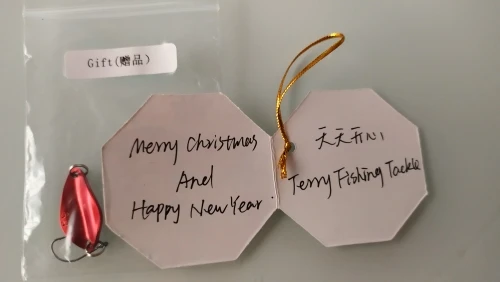 Gift(赠品)
Merry Christmas
And
Happy New Year
天天开心
Terry Fishing Tackle